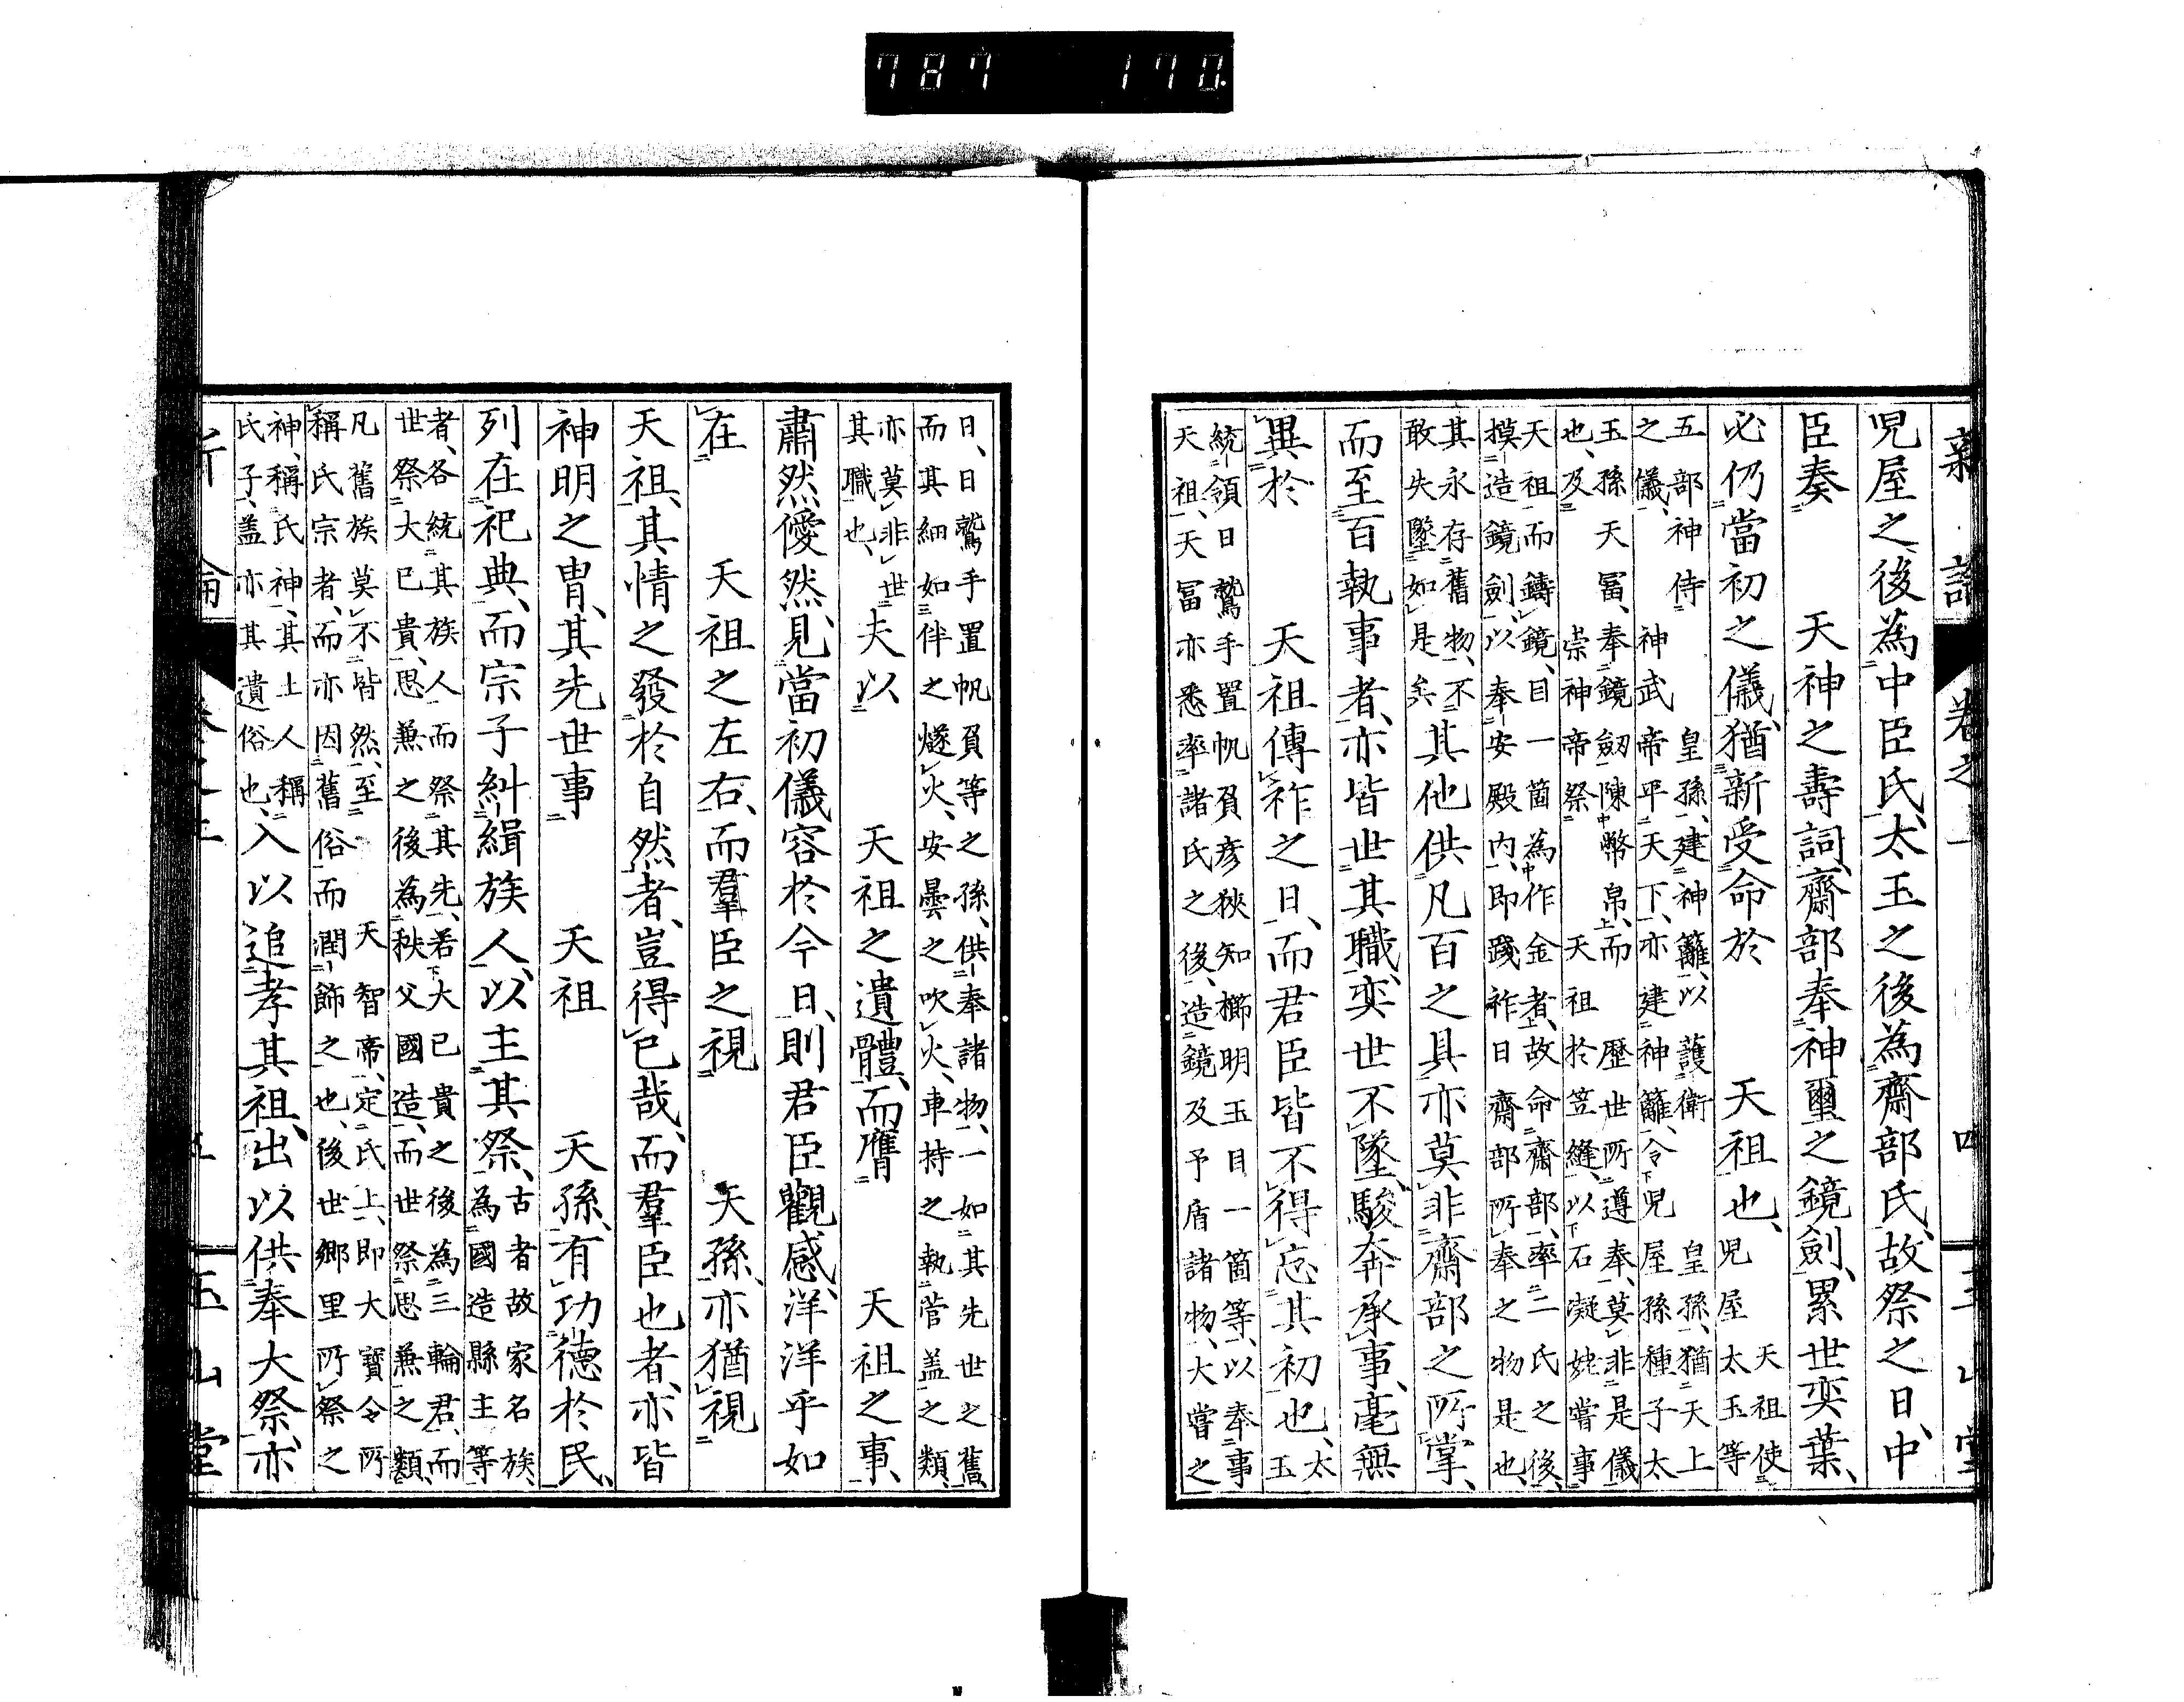 787 170
新論 卷之上 四 玉山堂
児屋之後為中臣氏、太玉之後為齋部氏、故祭之日、中
臣奏 天神之壽詞、齋部奉神璽之鏡劍、累世奕葉、
必仍當初之儀、猶新受命於 天祖也、児屋太玉等 天祖使
五部神侍 皇孫、建神籬、以護衛 皇孫、猶天上
之儀、 神武帝平天下、亦建神籬、令児屋孫種子太
玉孫天冨、奉鏡劔陳幣帛、而 歴世所遵奉、莫非是儀
也、及 崇神帝祭 天祖於笠縫、以石凝姥嘗事
天祖而鑄鏡、目一箇為作金者、故命齋部、率二氏之後、
摸造鏡劍、以奉安殿内、即踐祚日齋部所奉之物是也、
其永存舊物、不
敢失墜如是矣 其他供凡百之具、亦莫非齋部之所掌、
而至百執事者、亦皆世其職、奕世不墜、駿奔承事、毫無
異於 天祖傳祚之日、而君臣皆不得忘其初也、太玉
統領日鷲手置帆負彦狹知櫛明玉目一箇等、以奉事
天祖、天冨亦悉率諸氏之後、造鏡及予盾諸物、大嘗之
日、日鷲手置帆負等之孫、供奉諸物、一如其先世之舊、
而其細如伴之燧火、安曇之吹火、車持之執菅盖之類、
亦莫非世
其職也、 夫以 天祖之遺體、而膺 天祖之事、
肅然優然、見當初儀容於今日、則君臣觀感、洋洋乎如
在 天祖之左右、而羣臣之視 天孫、亦猶視
天祖、其情之發於自然者、豈得已哉、而羣臣也者、亦皆
神明之胄、其先世事 天祖 天孫、有功德於民、
列在祀典、而宗子糾緝族人、以主其祭、古者故家名族、
為國造縣主等
者、各統其族人、而祭其先、若大已貴之後為三輪君、而
世祭大已貴、思兼之後為秩父國造、而世祭思兼之類、
凡舊族莫不皆然、至 天智帝、定氏上、即大寶令所
稱氏宗者、而亦因舊俗而潤飾之也、後世鄉里所祭之
神、稱氏神、其土人稱
氏子、盖亦其遺俗也、 入以追孝其祖、出以供奉大祭、亦
玉山堂